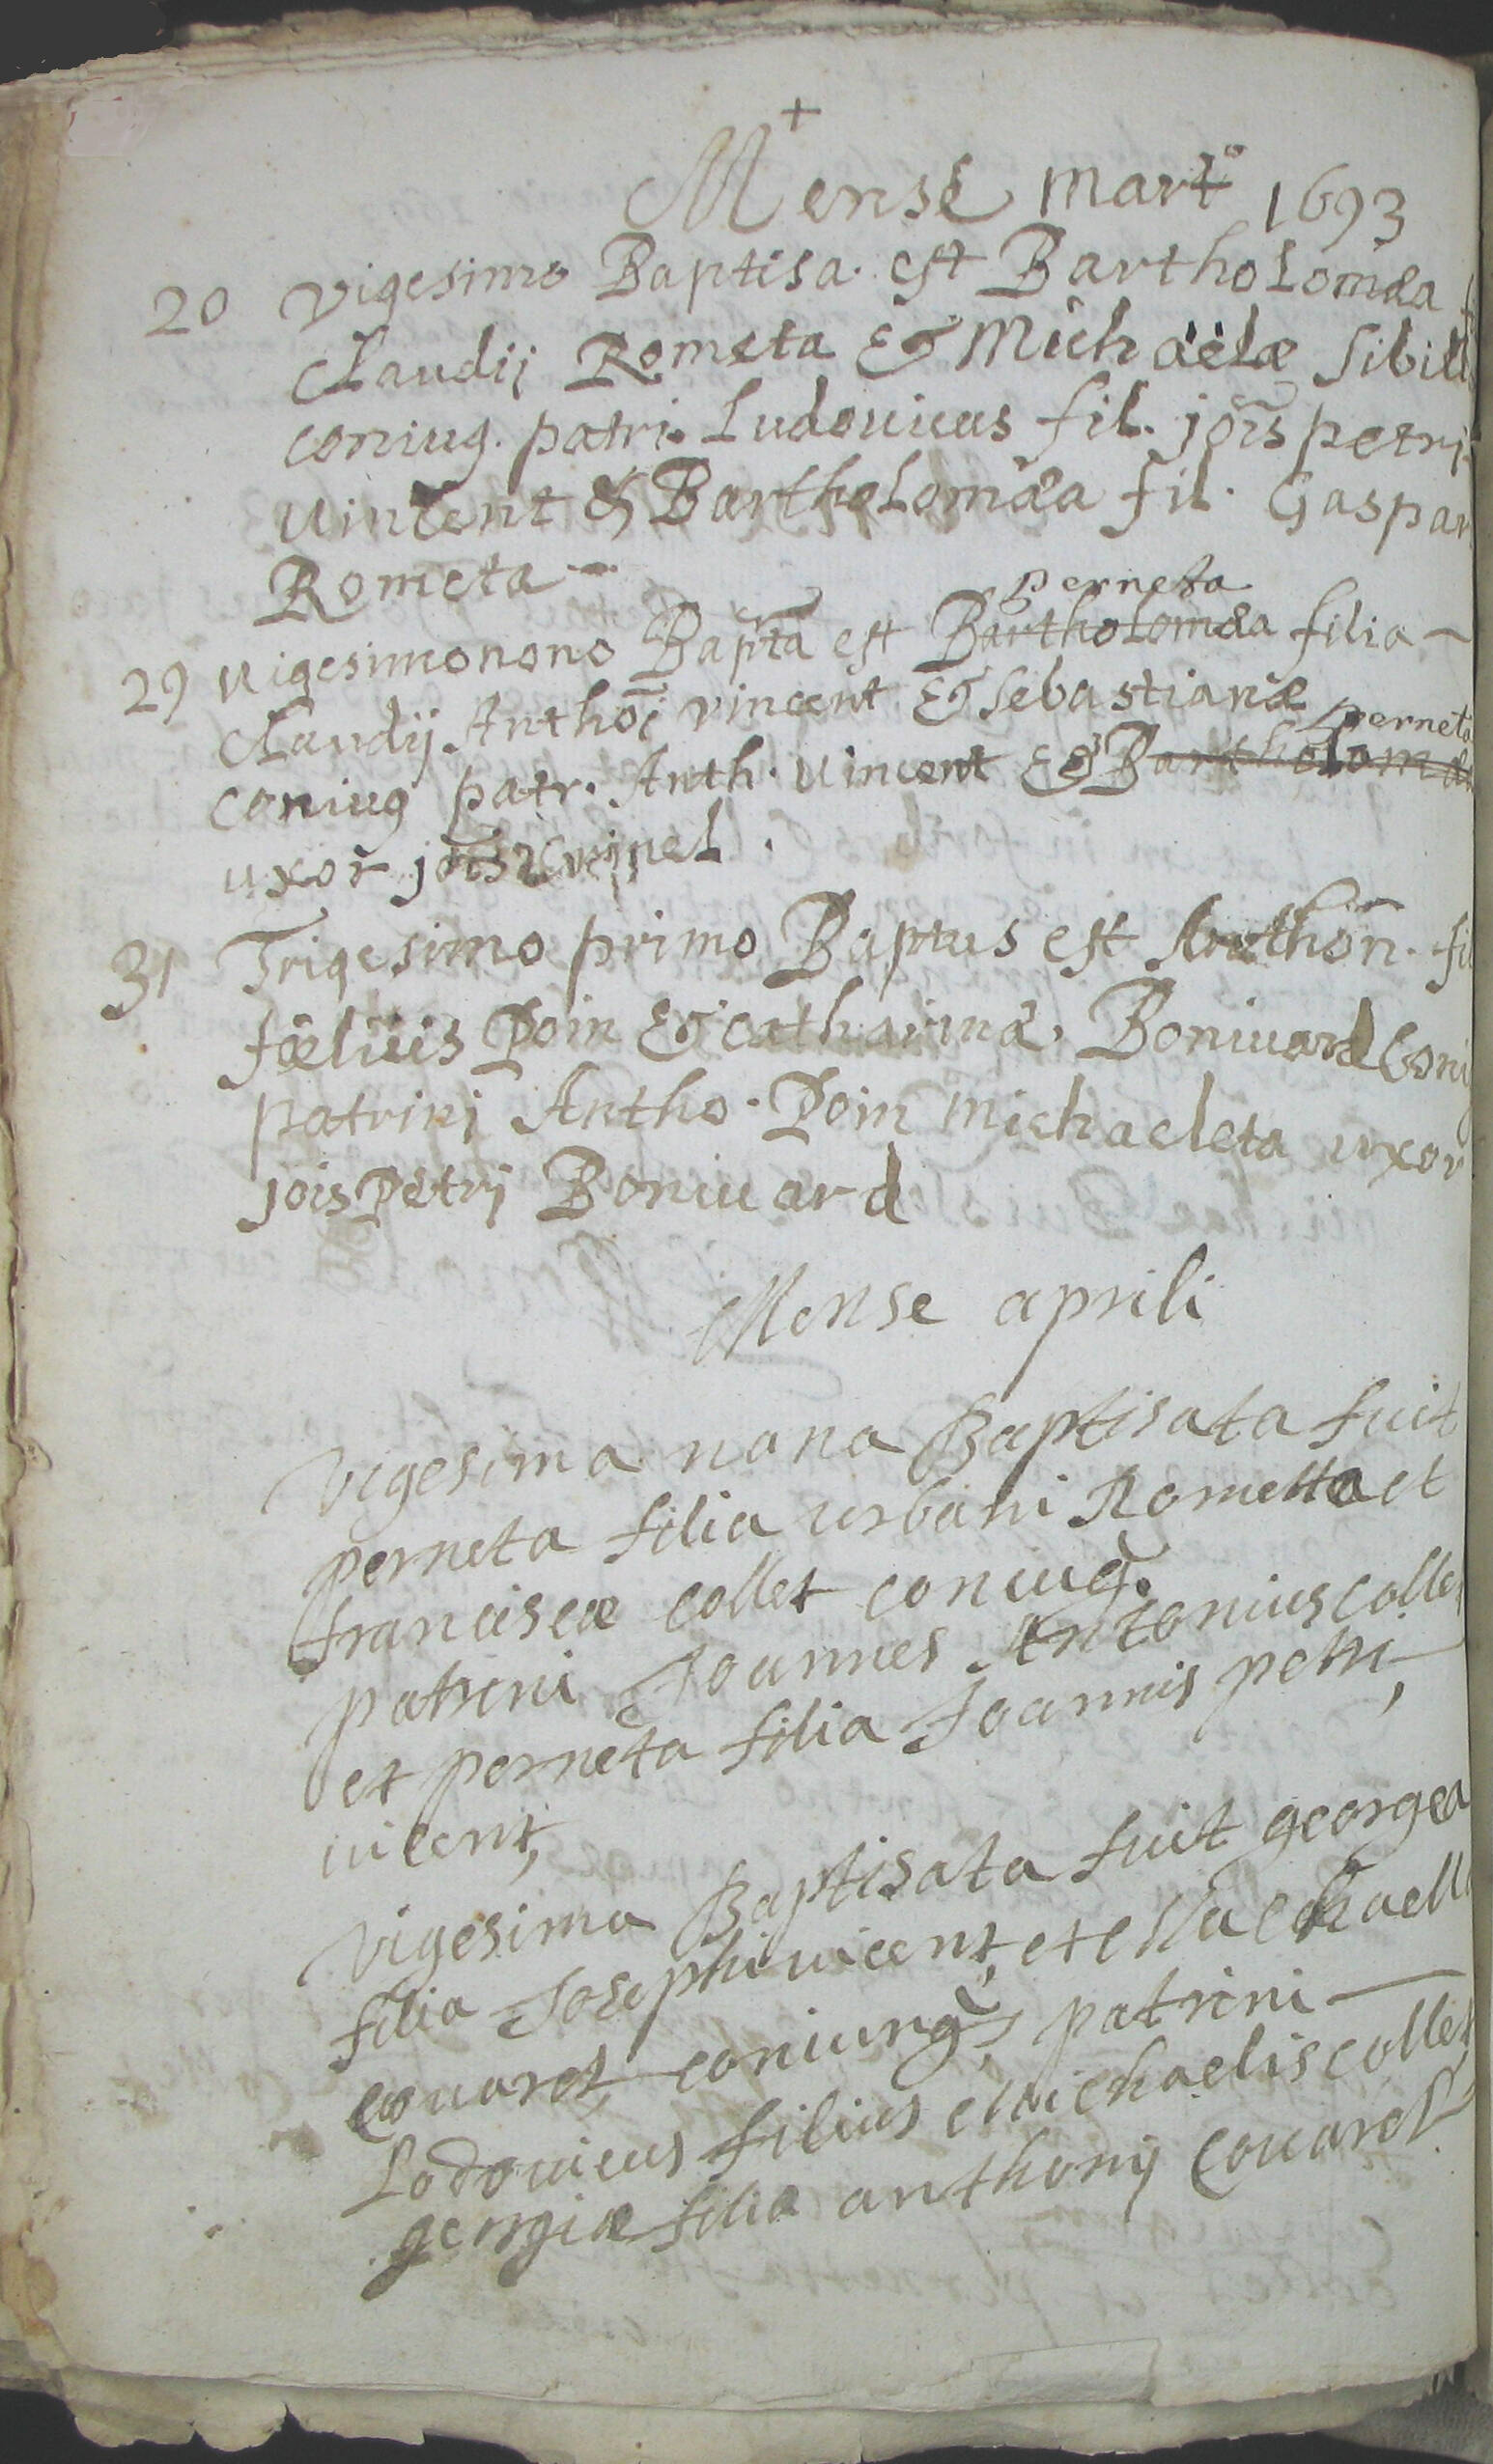 +
Mense mart° 1693
20 Vigesimo Baptisa. est Bartholomæa
Claudij Rometa & Michaëlæ Sibill
coniug. patri. Ludouicus fil. jois petri
Vincent & Bartholomæa fil. Gaspar
Rometa
perneta
29 Vigesimonono Bapta est Bartholomæa filia
Claudij Anthoi vincent & Sebastianæ
perneta
coniug patr. Anth. Vincent & Bartholomæa
uxor jois
31 Trigesimo primo Baptus est Anthon. fil
fœlicis Poin & catharinæ Boniuard Coni
patrini Antho. Poin michaeleta uxor
jois Petri Boniuard
Mense aprili
Vigesima nona Baptisata fuit
perneta filia urbani Rometta et
franciscæ collet coniug.
patrini Joannes Antonius collet
et perneta filia Joannis petri
uicent,
Vigesima Baptisata fuit georgea
filia Josephi uicent, et Machaell
couaret coniung, patrini
Lodouicus filius Michaelis collet
georgiæ filia anthonij Couaret